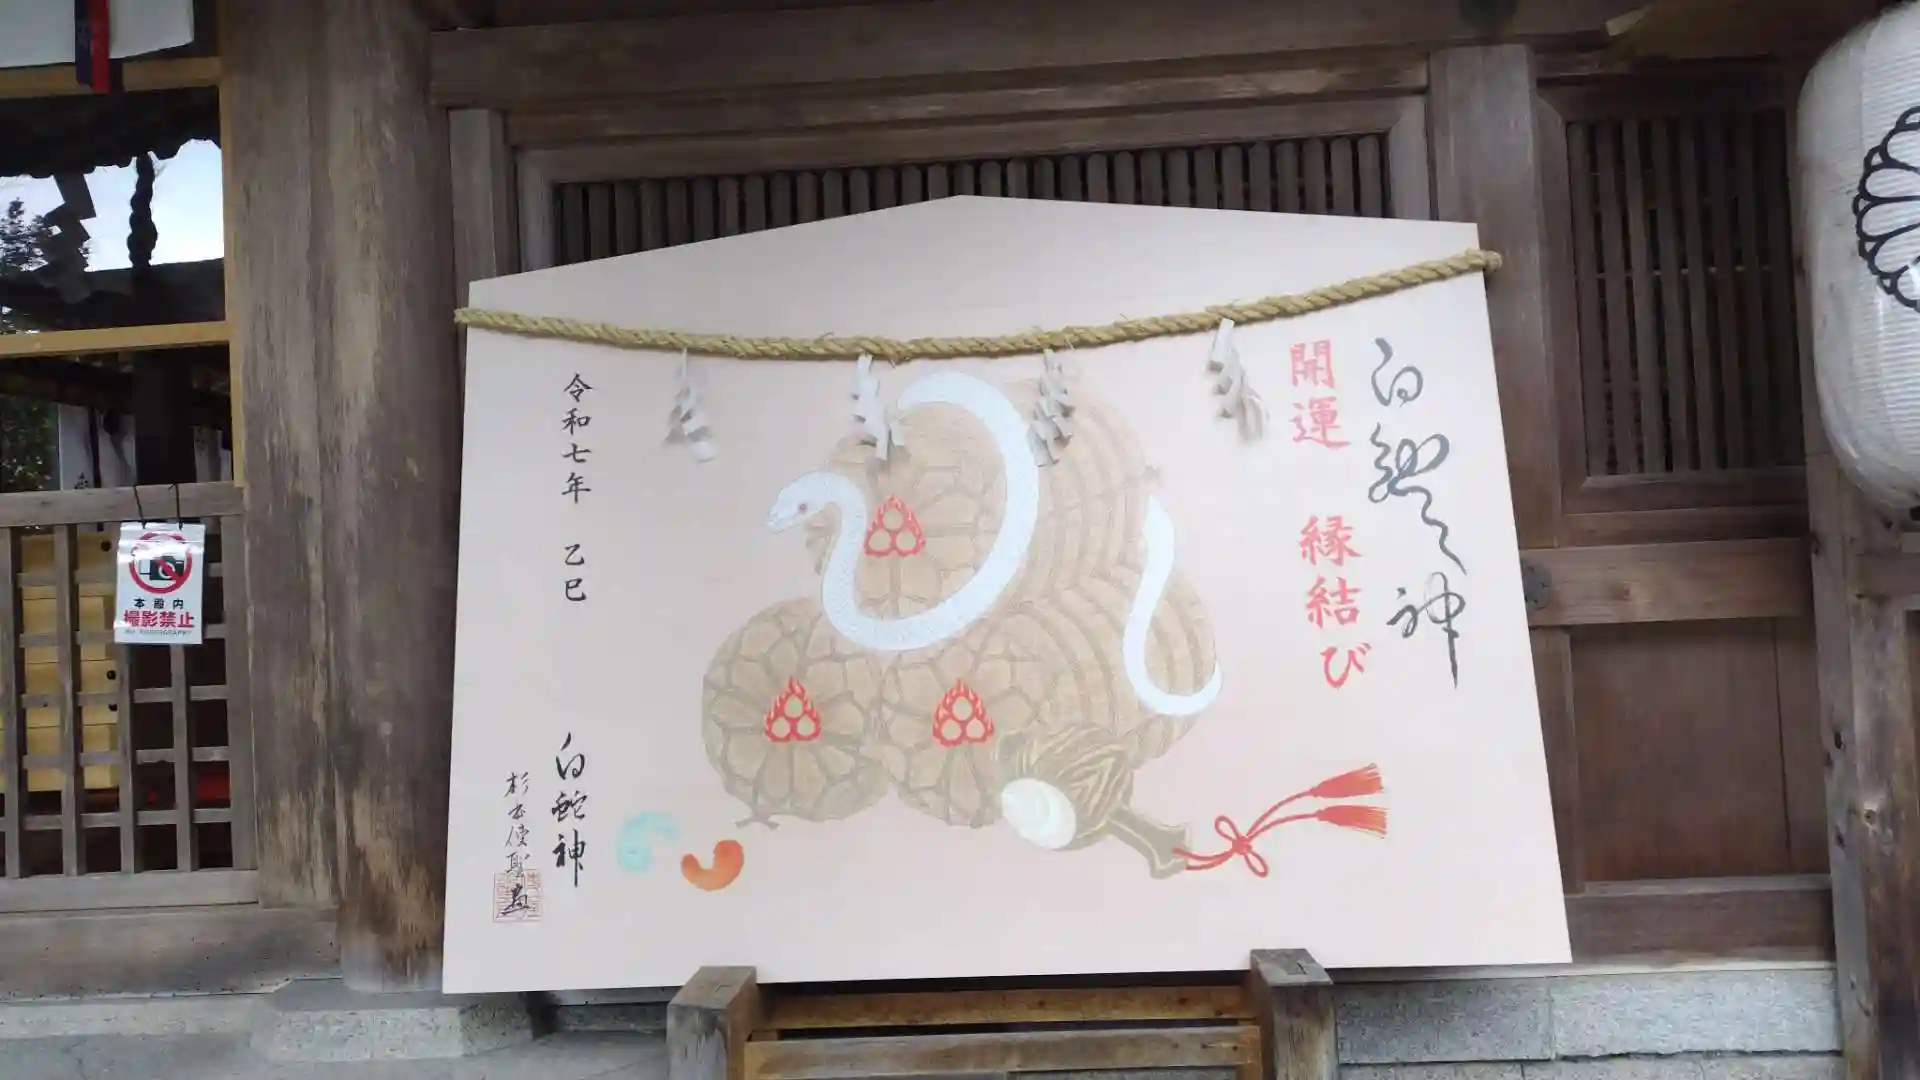 白蛇神
開運 縁結び
令和七年 乙巳
白蛇神
杉本使聖
画
本殿内
撮影禁止